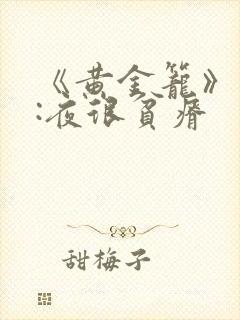 《黄金籠》
:夜很貧瘠
甜梅子